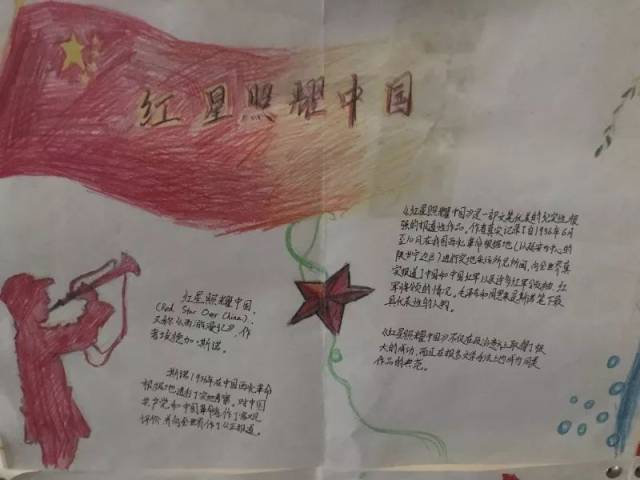 红星照耀中国
红星照耀中国,
(Red Star Over China),
又称《西行漫记》, 作
者埃德加·斯诺。
斯诺1936年在中国西北革命
根据地进行了实地考察,对中国
共产党和中国革命作了客观
评价,并向全世界作了公正报道。
《红星照耀中国》是一部文笔优美的纪实性很
强的报道性作品。作者真实记录了自1936年6月
至10月在我国西北革命根据地(以延安为中心的
陕甘宁边区)进行实地采访所见所闻,向全世界真
实报道了中国和中国工农红军以及许多红军领袖、红
军将领的情况。毛泽东和周恩来是斯诺笔下最
具代表性的人物。
《红星照耀中国》不仅在政治意义上取得了极
大的成功,而且在报告文学创作手法上也成为同类
作品的典范。